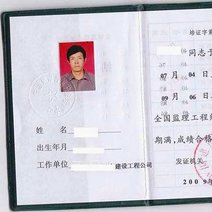 培证字第
同志于
07 月 04 日
09 月 06 日
全国监理工程
期满,成绩合格
发证机关
2009
姓名
出生年月
工作单位 建设工程公司